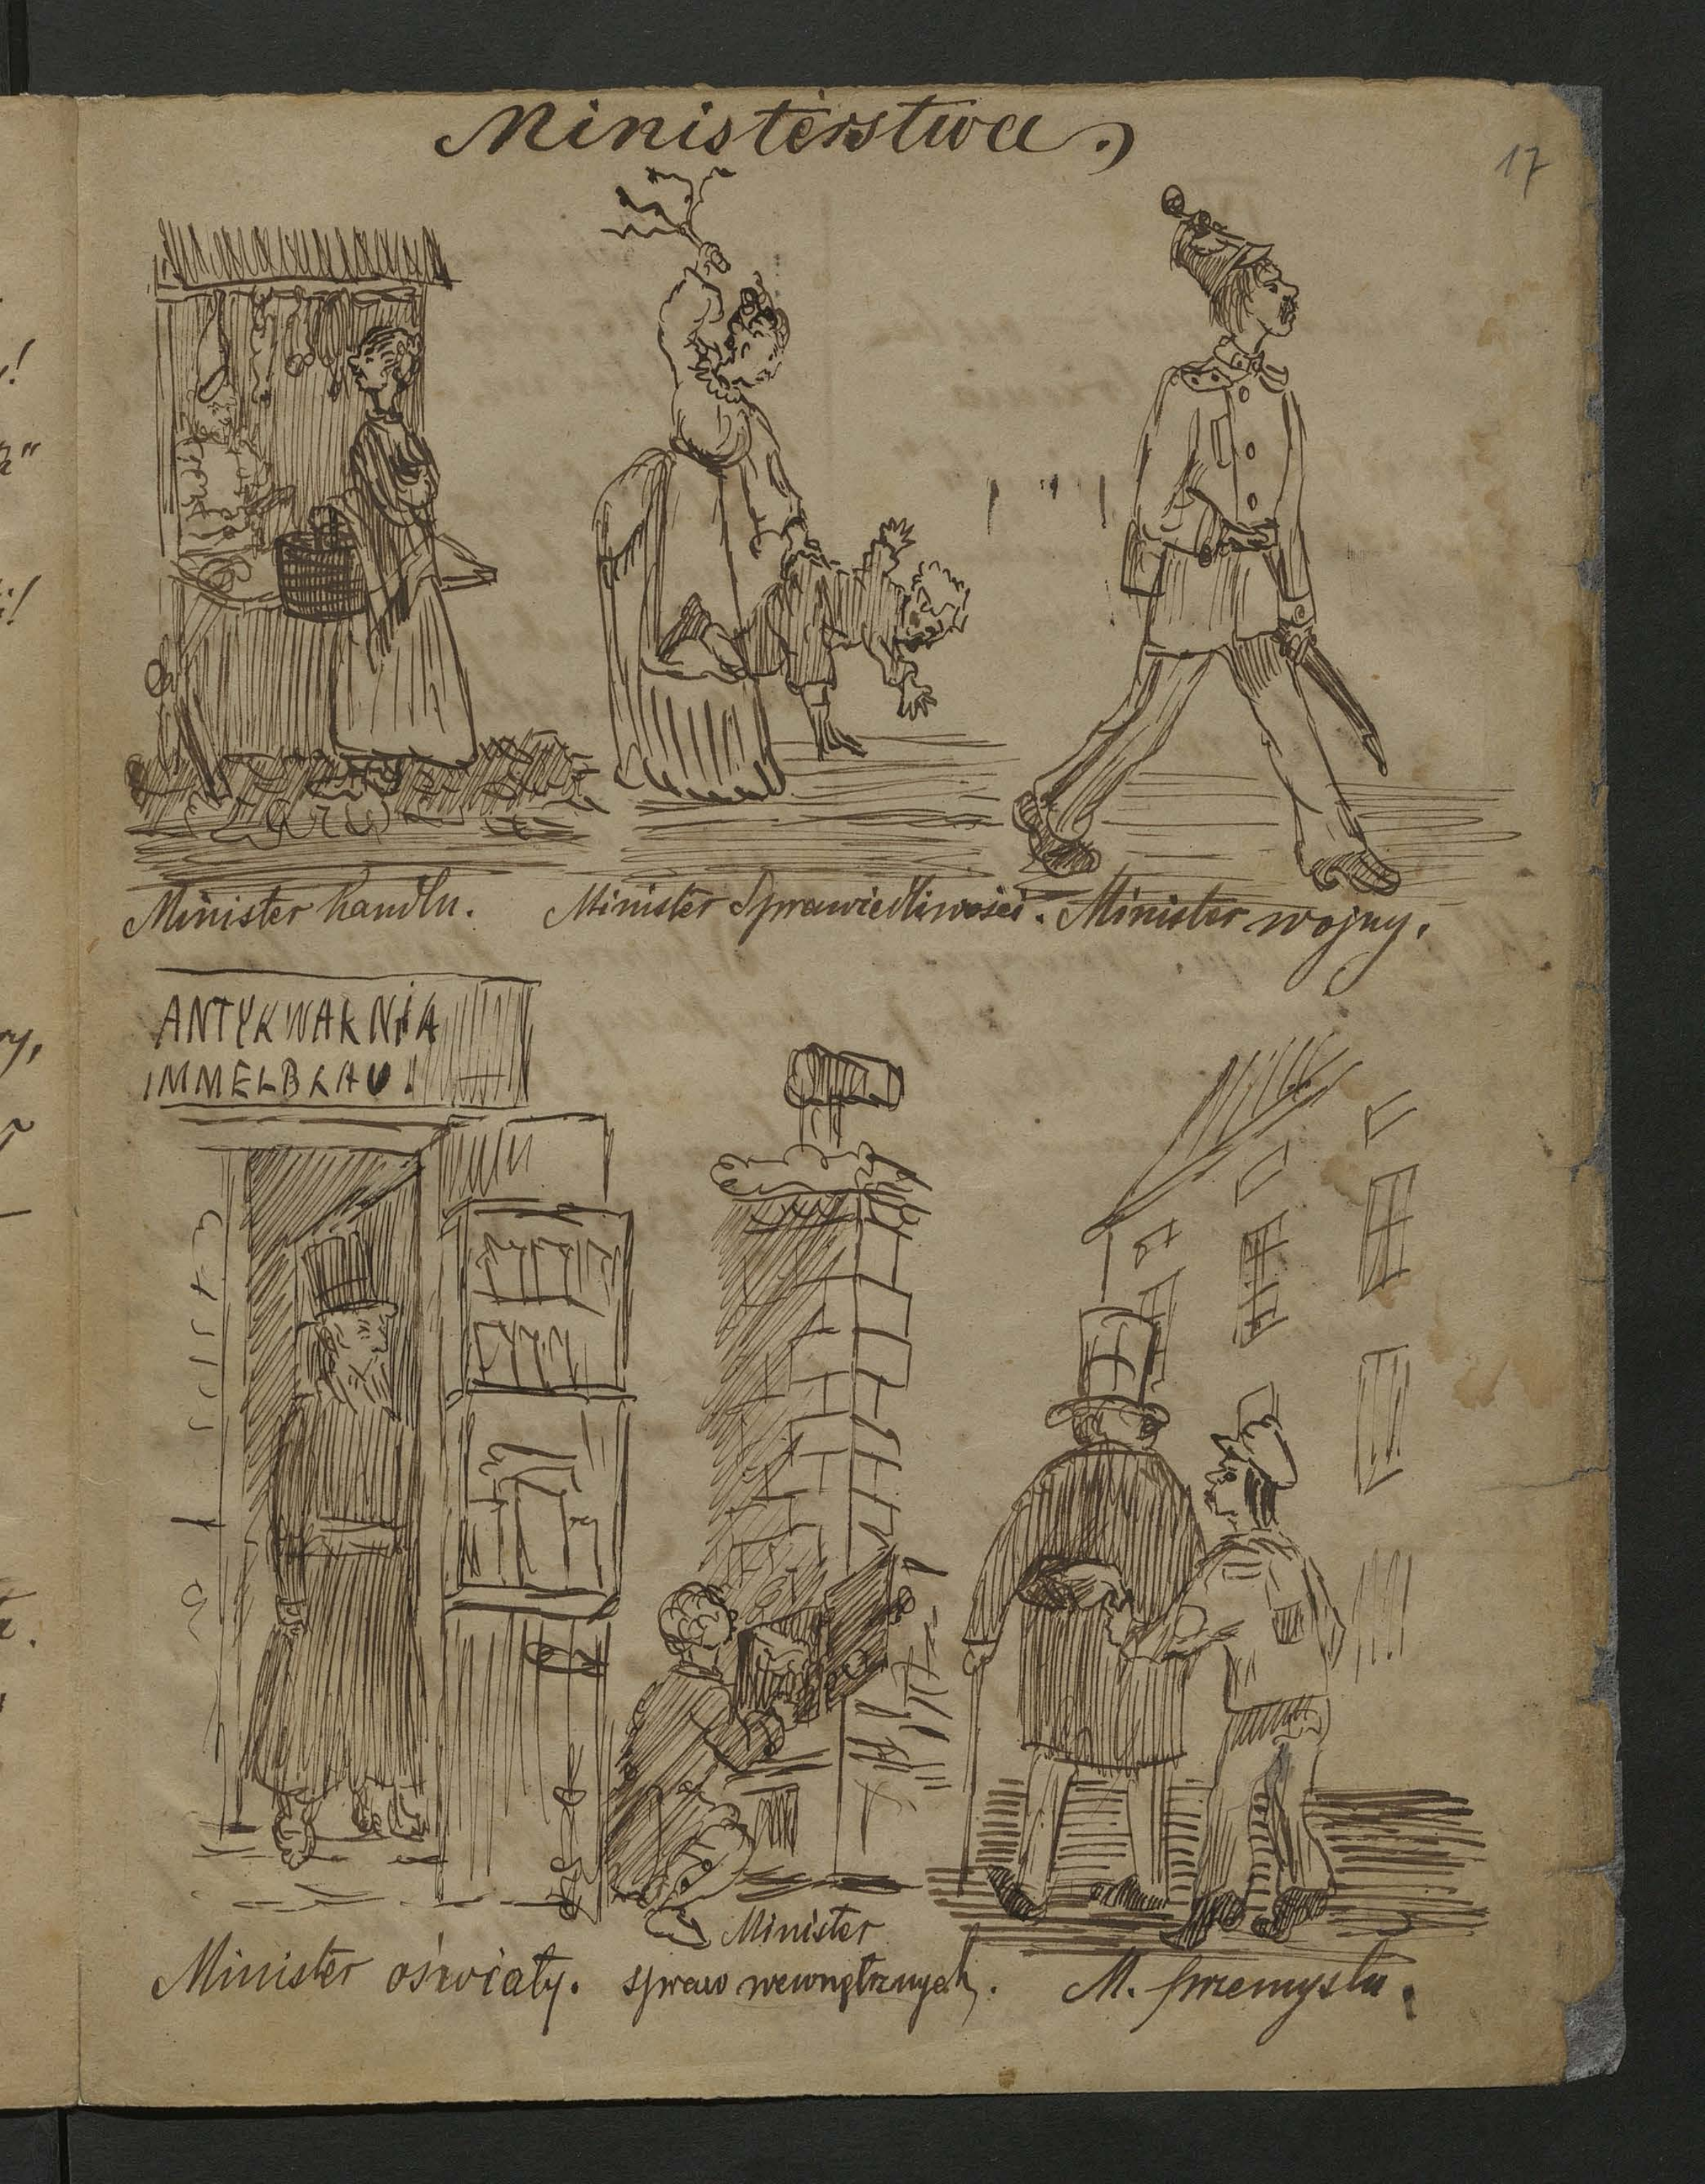 Ministerstwa.
17
Minister handlu.
Minister Sprawiedliwości.
Minister wojny.
ANTYKWARNIA
IMMELBLAU!
Minister oświaty.
Minister
spraw wewnętrznych.
M. przemysłu.